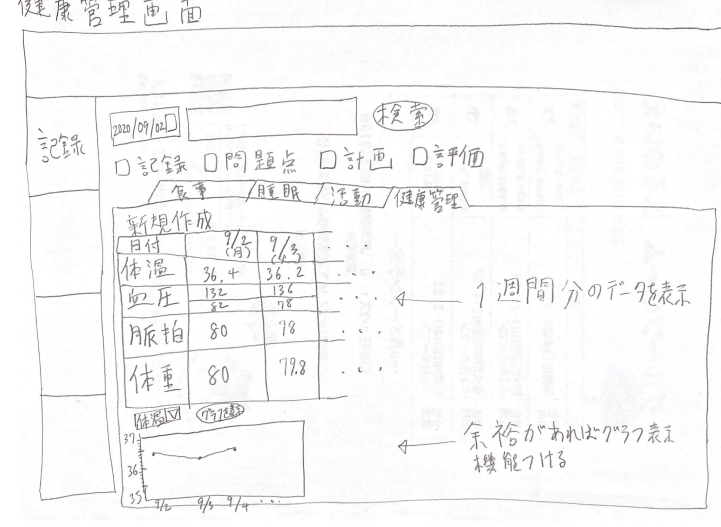 健康管理画面
記録
2020/09/02
検索
記録 問題点 計画 評価
食事 睡眠 活動 健康管理
新規作成
日付 9/2(月) 9/3(火) ・・・
体温 36.4 36.2
血圧 132 136 ・・・
82 78
脈拍 80 78 ・・・
体重 80 79.8 ・・・
← 1週間分のデータを表示
体温 ▽ グラフを表示
37
36
35
9/2 9/3 9/4 ・・・
← 余裕があればグラフ表示
機能つける